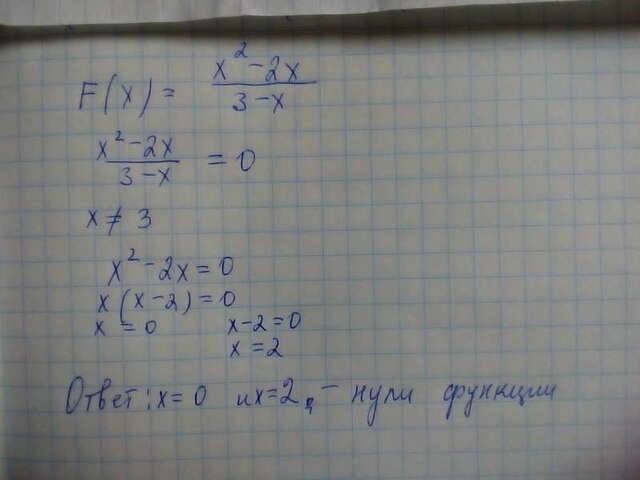 F(x) = (x² - 2x)/(3 - x)
(x² - 2x)/(3 - x) = 0
x ≠ 3
x² - 2x = 0
x(x - 2) = 0
x = 0 x - 2 = 0
x = 2
Ответ: x = 0 и x = 2 - нули функции